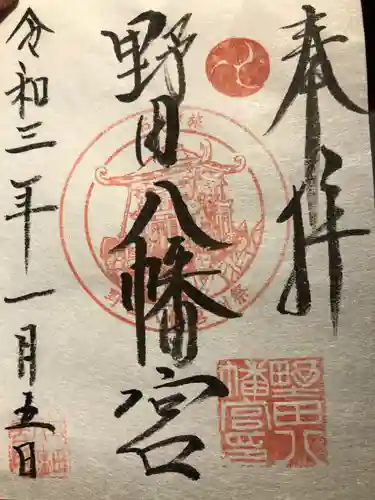 奉拝
野田八幡宮
令和三年一月五日
野田八幡宮印